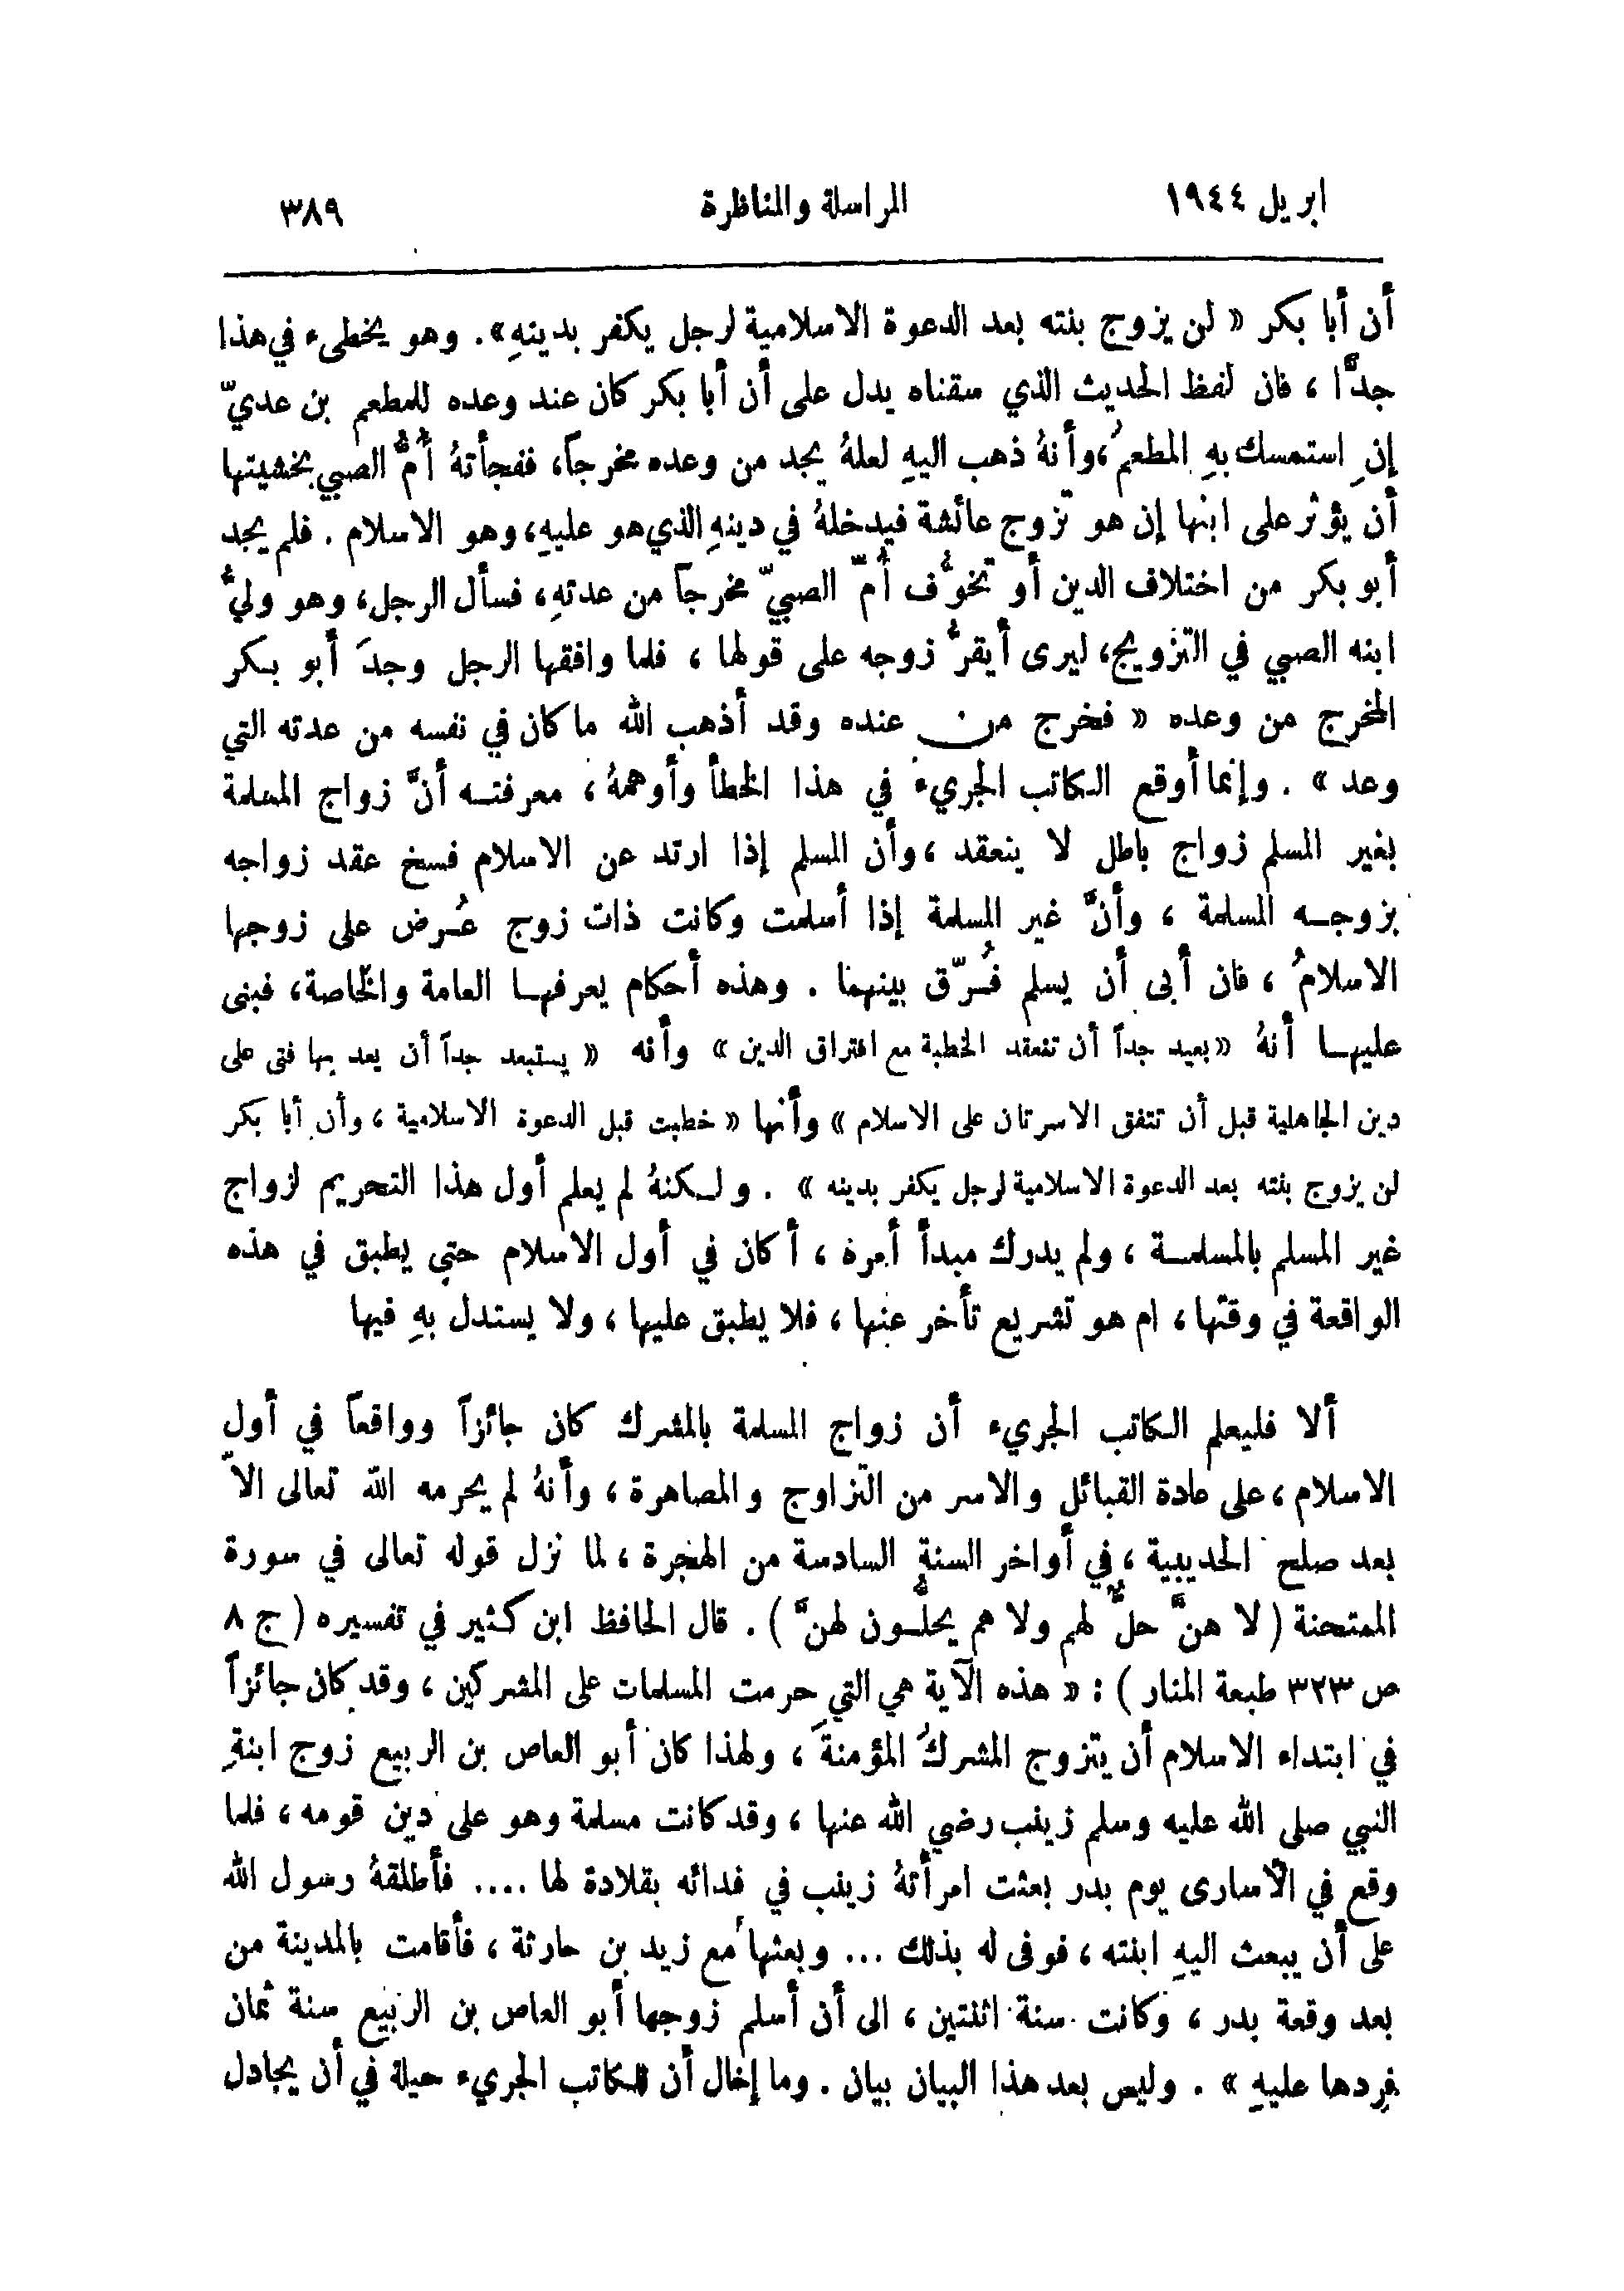 ابريل ١٩٤٤ المراسلة والمناظرة ٣٨٩
أن أبا بكر « لن يزوج بنته بعد الدعوة الاسلامية لرجل يكفر بدينهِ». وهو يخطىء في هذا
جدًّا ، فان لفظ الحديث الذي سقناه يدل على أن أبا بكر كان عند وعده للمطعم بن عديّ
إنِ استمسك بهِ المطعمُ ، وأنهُ ذهب اليهِ لعلهُ يجد من وعده مخرجاً، ففجأتهُ أُمُّ الصبي بخشيتها
أن يؤثر على ابنها إن هو تزوج عائشة فيدخلهُ في دينهِ الذي هو عليهِ، وهو الاسلام . فلم يجد
أبو بكر من اختلاف الدين أو تخوُّف أُمّ الصبيّ مخرجاً من عدتهِ، فسأل الرجل، وهو وليُّ
ابنه الصبي في التزويج، ليرى أيقرُّ زوجه على قولها ، فلما وافقها الرجل وجدَ أبو بكر
المخرج من وعده « فخرج من عنده وقد أذهب الله ما كان في نفسه من عدته التي
وعد » . وإنما أوقع الكاتب الجريء في هذا الخطأ وأوهمهُ ، معرفته أنَّ زواج المسلمة
بغير المسلم زواج باطل لا ينعقد ، وأن المسلم إذا ارتد عن الاسلام فسخ عقد زواجه
بزوجه المسلمة ، وأنَّ غير المسلمة إذا أسلمت وكانت ذات زوج عُرض على زوجها
الاسلامُ ، فان أبى أن يسلم فُرّق بينهما . وهذه أحكام يعرفها العامة والخاصة، فبنى
عليها أنهُ « بعيد جداً أن تنعقد الخطبة مع افتراق الدين » وأنه « يستبعد جداً أن يعد بها فتى على
دين الجاهلية قبل أن تتفق الاسرتان على الاسلام » وأنها « خطبت قبل الدعوة الاسلامية ، وأن أبا بكر
لن يزوج بنته بعد الدعوة الاسلامية لرجل يكفر بدينه » . ولكنهُ لم يعلم أول هذا التحريم لزواج
غير المسلم بالمسلمة ، ولم يدرك مبدأ أمره ، أكان في أول الاسلام حتى يطبق في هذه
الواقعة في وقتها ، ام هو تشريع تأخر عنها ، فلا يطبق عليها ، ولا يستدل بهِ فيها
ألا فليعلم الكاتب الجريء أن زواج المسلمة بالمشرك كان جائزاً وواقعاً في أول
الاسلام ، على عادة القبائل والاسر من التزاوج والمصاهرة ، وأنهُ لم يحرمه الله تعالى الاّ
بعد صلح الحديبية ، في أواخر السنة السادسة من الهجرة ، لما نزل قوله تعالى في سورة
الممتحنة ( لا هنَّ حلٌّ لهم ولا هم يحلُّون لهنَّ ) . قال الحافظ ابن كثير في تفسيره ( ج ٨
ص ٣٢٣ طبعة المنار ) : « هذه الآية هي التي حرمت المسلمات على المشركين ، وقد كان جائزاً
في ابتداء الاسلام أن يتزوج المشركُ المؤمنةَ ، ولهذا كان أبو العاص بن الربيع زوج ابنةِ
النبي صلى الله عليه وسلم زينب رضي الله عنها ، وقد كانت مسلمة وهو على دين قومه ، فلما
وقع في الأسارى يوم بدر بعثت امرأتهُ زينب في فدائه بقلادة لها .... فأطلقهُ رسول الله
على أن يبعث اليهِ ابنته ، فوفى له بذلك ... وبعثها مع زيد بن حارثة ، فأقامت بالمدينة من
بعد وقعة بدر ، وكانت سنة اثنتين ، الى أن أسلم زوجها أبو العاص بن الربيع سنة ثمان
فردها عليهِ » . وليس بعد هذا البيان بيان . وما إخال أن للكاتب الجريء حيلة في أن يجادل